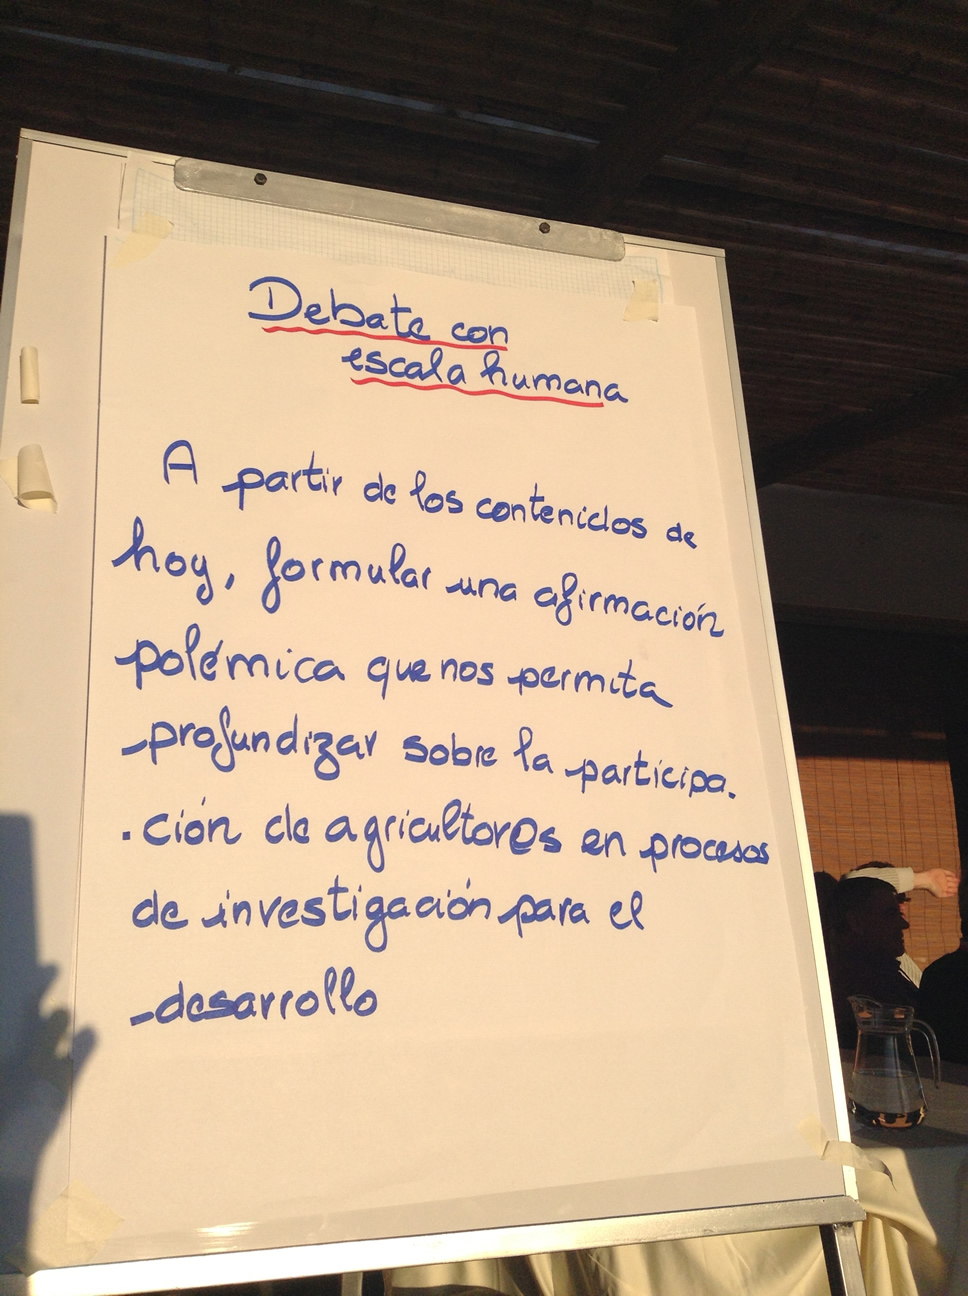 Debate con
escala humana
A partir de los contenidos de
hoy, formular una afirmación
polémica que nos permita
profundizar sobre la participa-
-ción de agricultor@s en procesos
de investigación para el
desarrollo